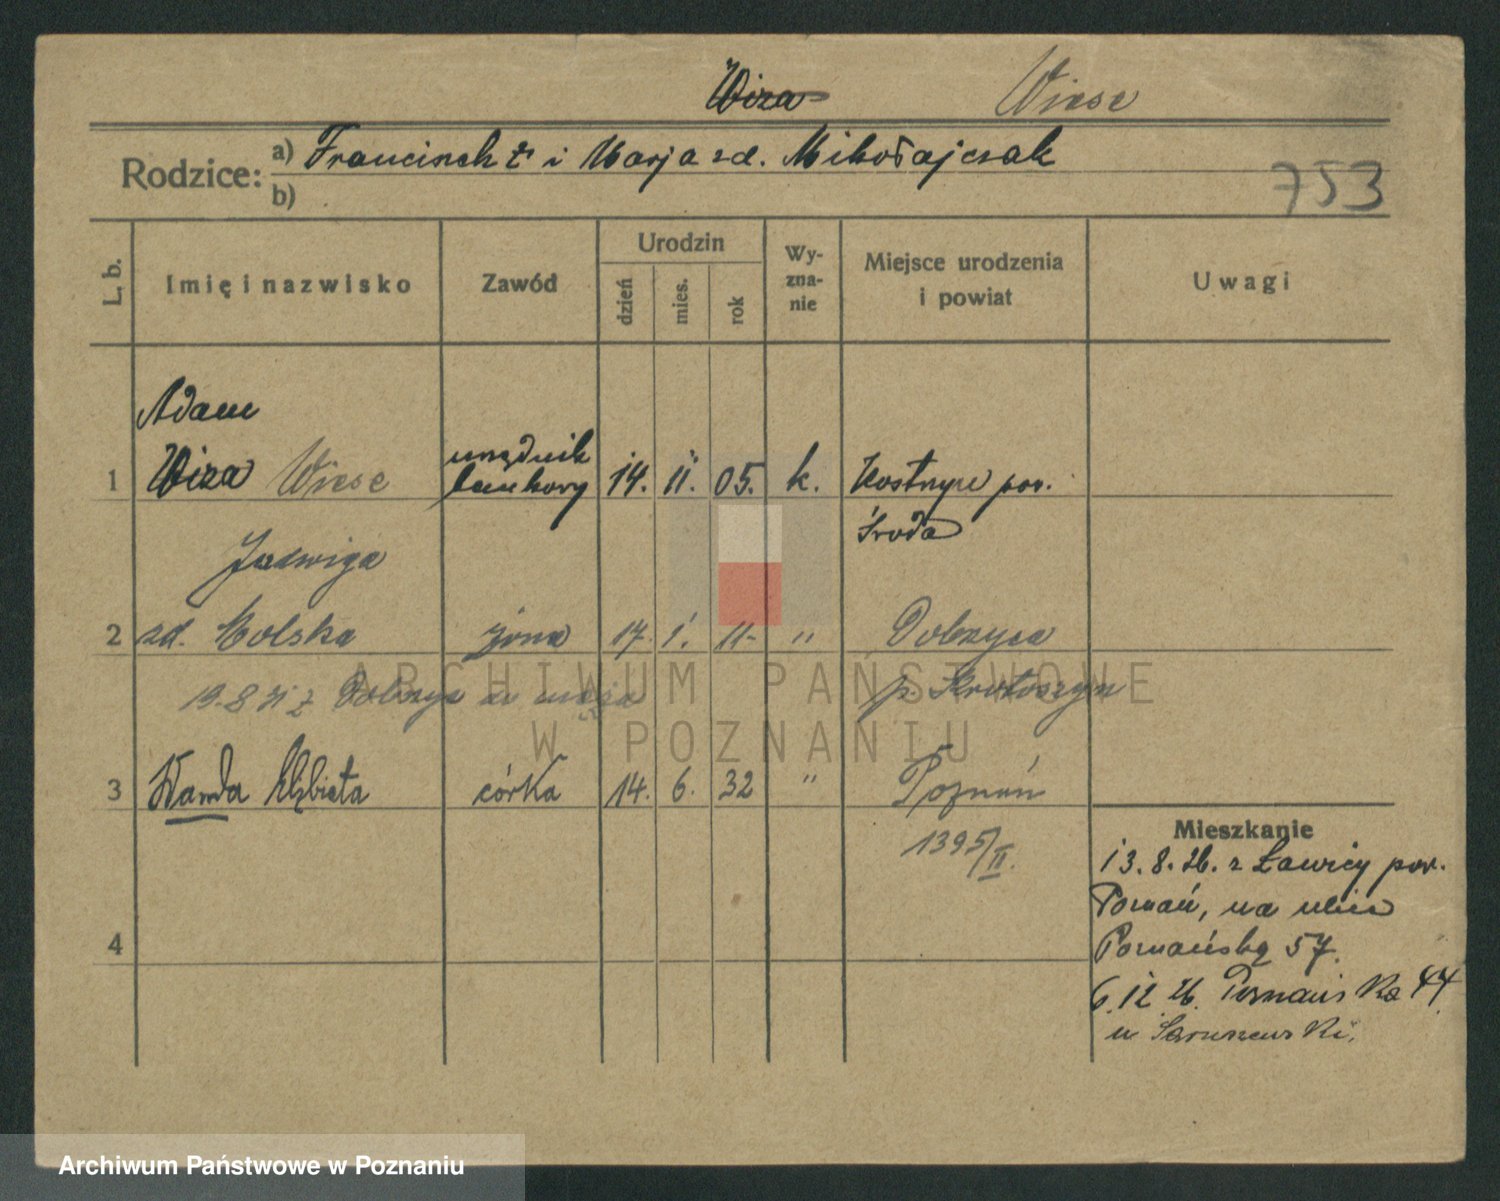 Wiza Wiese
Rodzice: a) Franciszek ż i Marja zd. Mikołajczak
b)
753
L. b. Imię i nazwisko Zawód Urodzin dzień mies. rok Wy-zna-nie Miejsce urodzenia i powiat Uwagi
Adam
1 Wiza Wiese urzędnik bankowy 14. II. 05. k. Kostrzyn pow.
Środa
Jadwiga
2 zd. Molska żona 17. 1. 11- " Dobrzyca
19.8 31 z Dobrzyc do męża p. Krotoszyn
3 Wanda Elżbieta córka 14. 6. 32 " Poznań
1395/II.
Mieszkanie
13. 8. 26. z Ławicy pow.
Poznań, na ulicę
4 Poznańską 57.
6. 12 26. Poznańska 44
u
ARCHIWUM PAŃSTWOWE
W POZNANIU
Archiwum Państwowe w Poznaniu